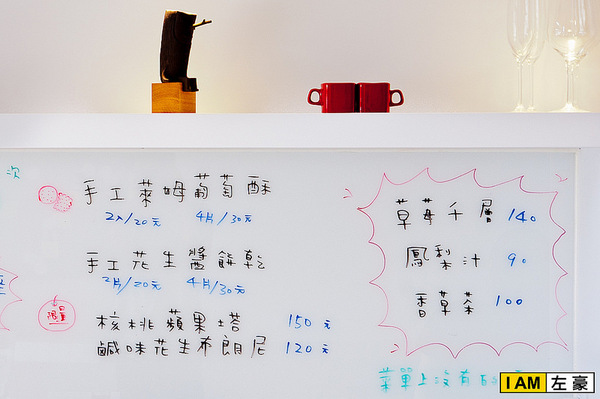 次
手工萊姆葡萄酥
2入/20元 4片/30元
手工花生醬餅乾
2片/20元 4片/30元
限量
核桃蘋果塔 150元
鹹味花生布朗尼 120元
草莓千層 140
鳳梨汁 90
香草茶 100
菜單上沒有
I AM 左豪